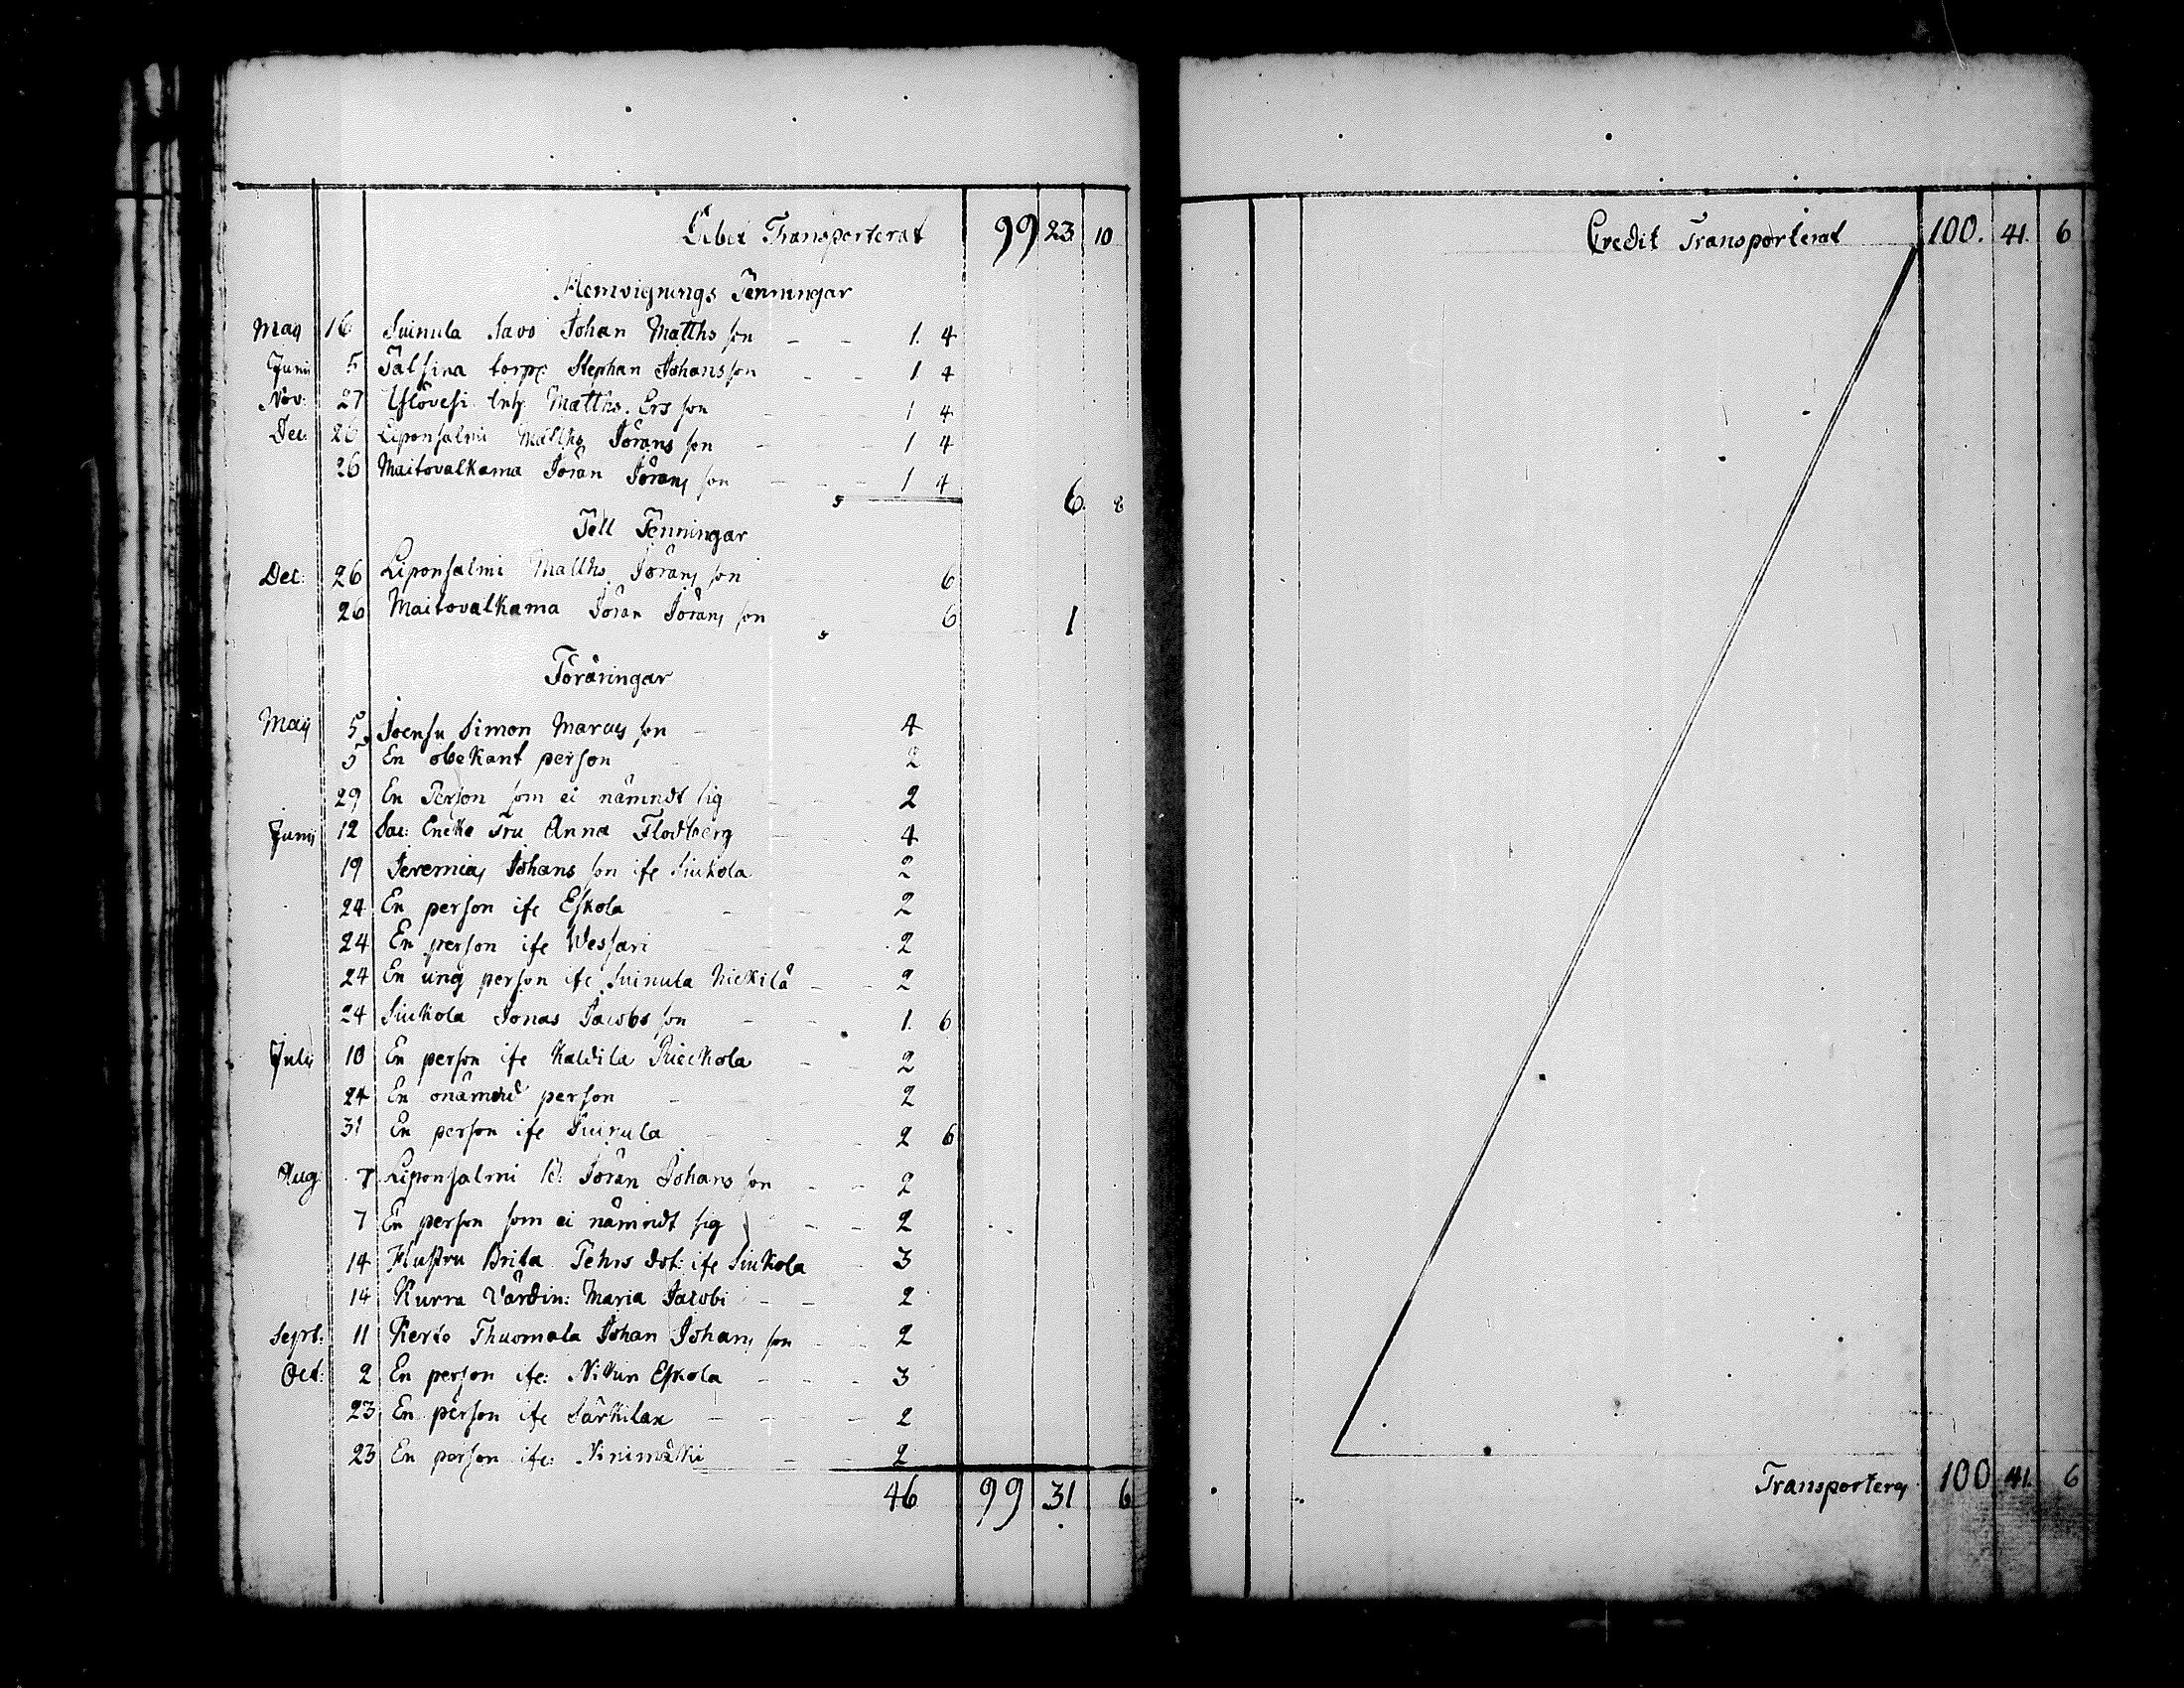 Debet Transporterat 99 23 10
Hemvignings Penningar
Maij 16 Suinula Savo Johan Matths son 1. 4
Junii 5 Talsina torpr Stephan Johans son 1 4
Nov: 27 Matths. Ers son 1 4
Dec: 26 Liponsalmi Matths Jörans son 1 4
26 Maitovalkama Jöran Jörans son 1 4
6. 8
Tell Penningar
Dec: 26 Liponsalmi Matths. Jörans son 6
26 Maitovalkama Jöran Jörans son 6 1
Föräringar
Maij 5 Joensu Simon Marcus son 4
5 En obekant person 2
29 En Person som ei nämndt sig 2
Junii 12 Sac: Encke Fru Anna Flodberg 4
19 Jeremias Johans son ifr Siukola 2
24 En person ifr Eskola 2
24 En person ifr Wessari 2
24 En ung person ifr Suinula Nickilä 2
24 Siukola Jonas Jacobs son 1. 6
Julii 10 En person ifr Kaldila Rieckola 2
24 En onämnd person 2
31 En person ifr Suinula 2 6
Aug: 7 Liponsalmi Jöran Johans son 2
7 En person som ei nämndt sig 2
14 Hustru Brita Pehrs dot: ifr Siukola 3
14 Kurra Värdin: Maria Jacobi 2
Sept: 11 Kerto Thuomala Johan Johans son 2
Oct: 2 En person ifr: Eskola 3
23 En person ifr Särkilax 2
23 En person ifr: Ninimäki 2
46 99 31 6
Credit Transporterat 100. 41. 6
Transporteras 100 41. 6